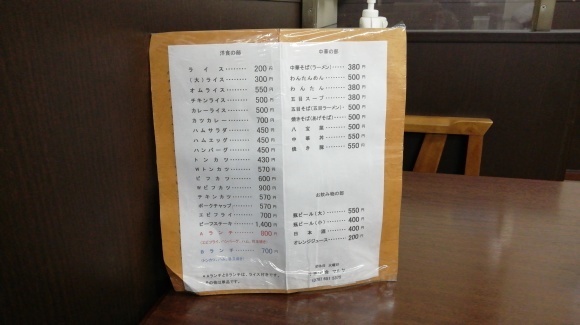 洋食の部
ライス 200円
(大)ライス 300円
オムライス 550円
チキンライス 500円
カレーライス 500円
カツカレー 700円
ハムサラダ 450円
ハムエッグ 450円
ハンバーグ 450円
トンカツ 430円
Wトンカツ 570円
ビフカツ 600円
Wビフカツ 900円
チキンカツ 570円
ポークチャップ 570円
エビフライ 700円
ビーフステーキ 1,400円
Aランチ 800円
Bランチ 700円
中華の部
中華そば(ラーメン) 380円
わんたんめん 500円
わんたん 380円
五目スープ 380円
五目そば(五目ラーメン) 500円
焼きそば(あげそば) 500円
八宝菜 550円
中華丼 550円
焼き飯 550円
お飲み物の部
瓶ビール(大) 550円
瓶ビール(小) 400円
日本酒 400円
オレンジジュース 200円
定休日 火曜日